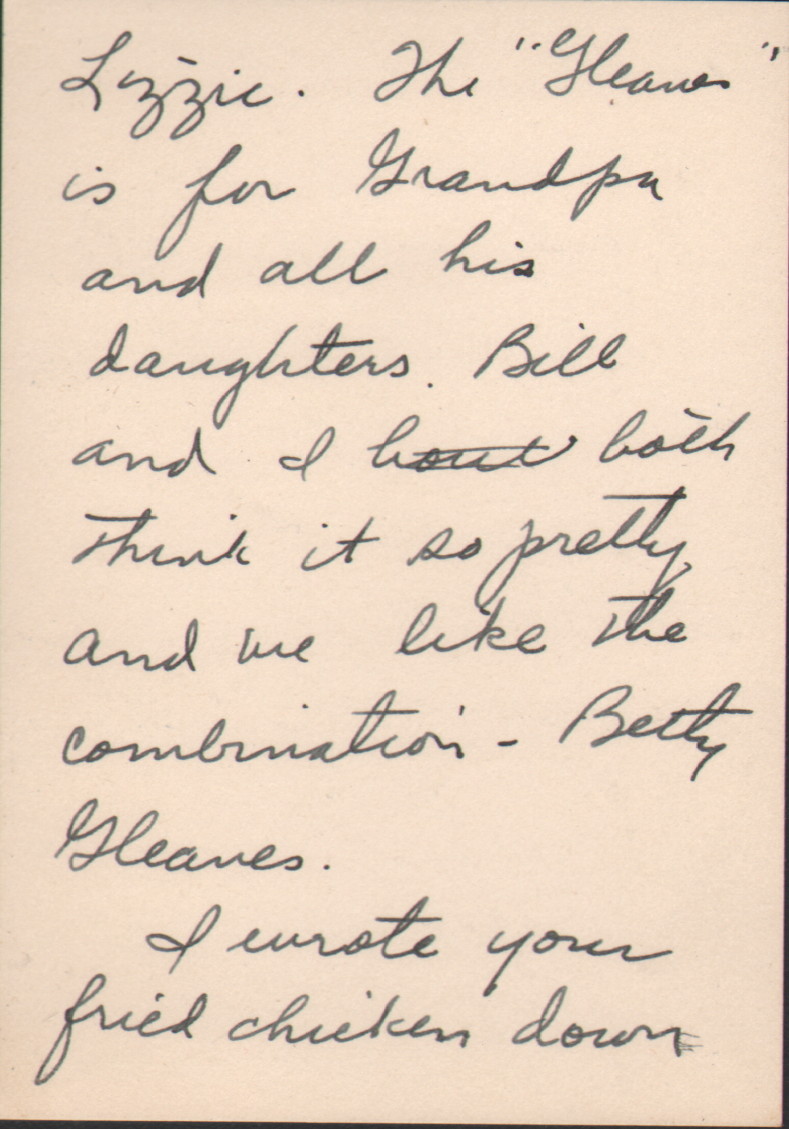 Lizzie. The "Gleaves"
is for Grandpa
and all his
daughters. Bill
and I both
think it so pretty
and we like the
combination - Betty
Gleaves.
I wrote your
fried chicken down